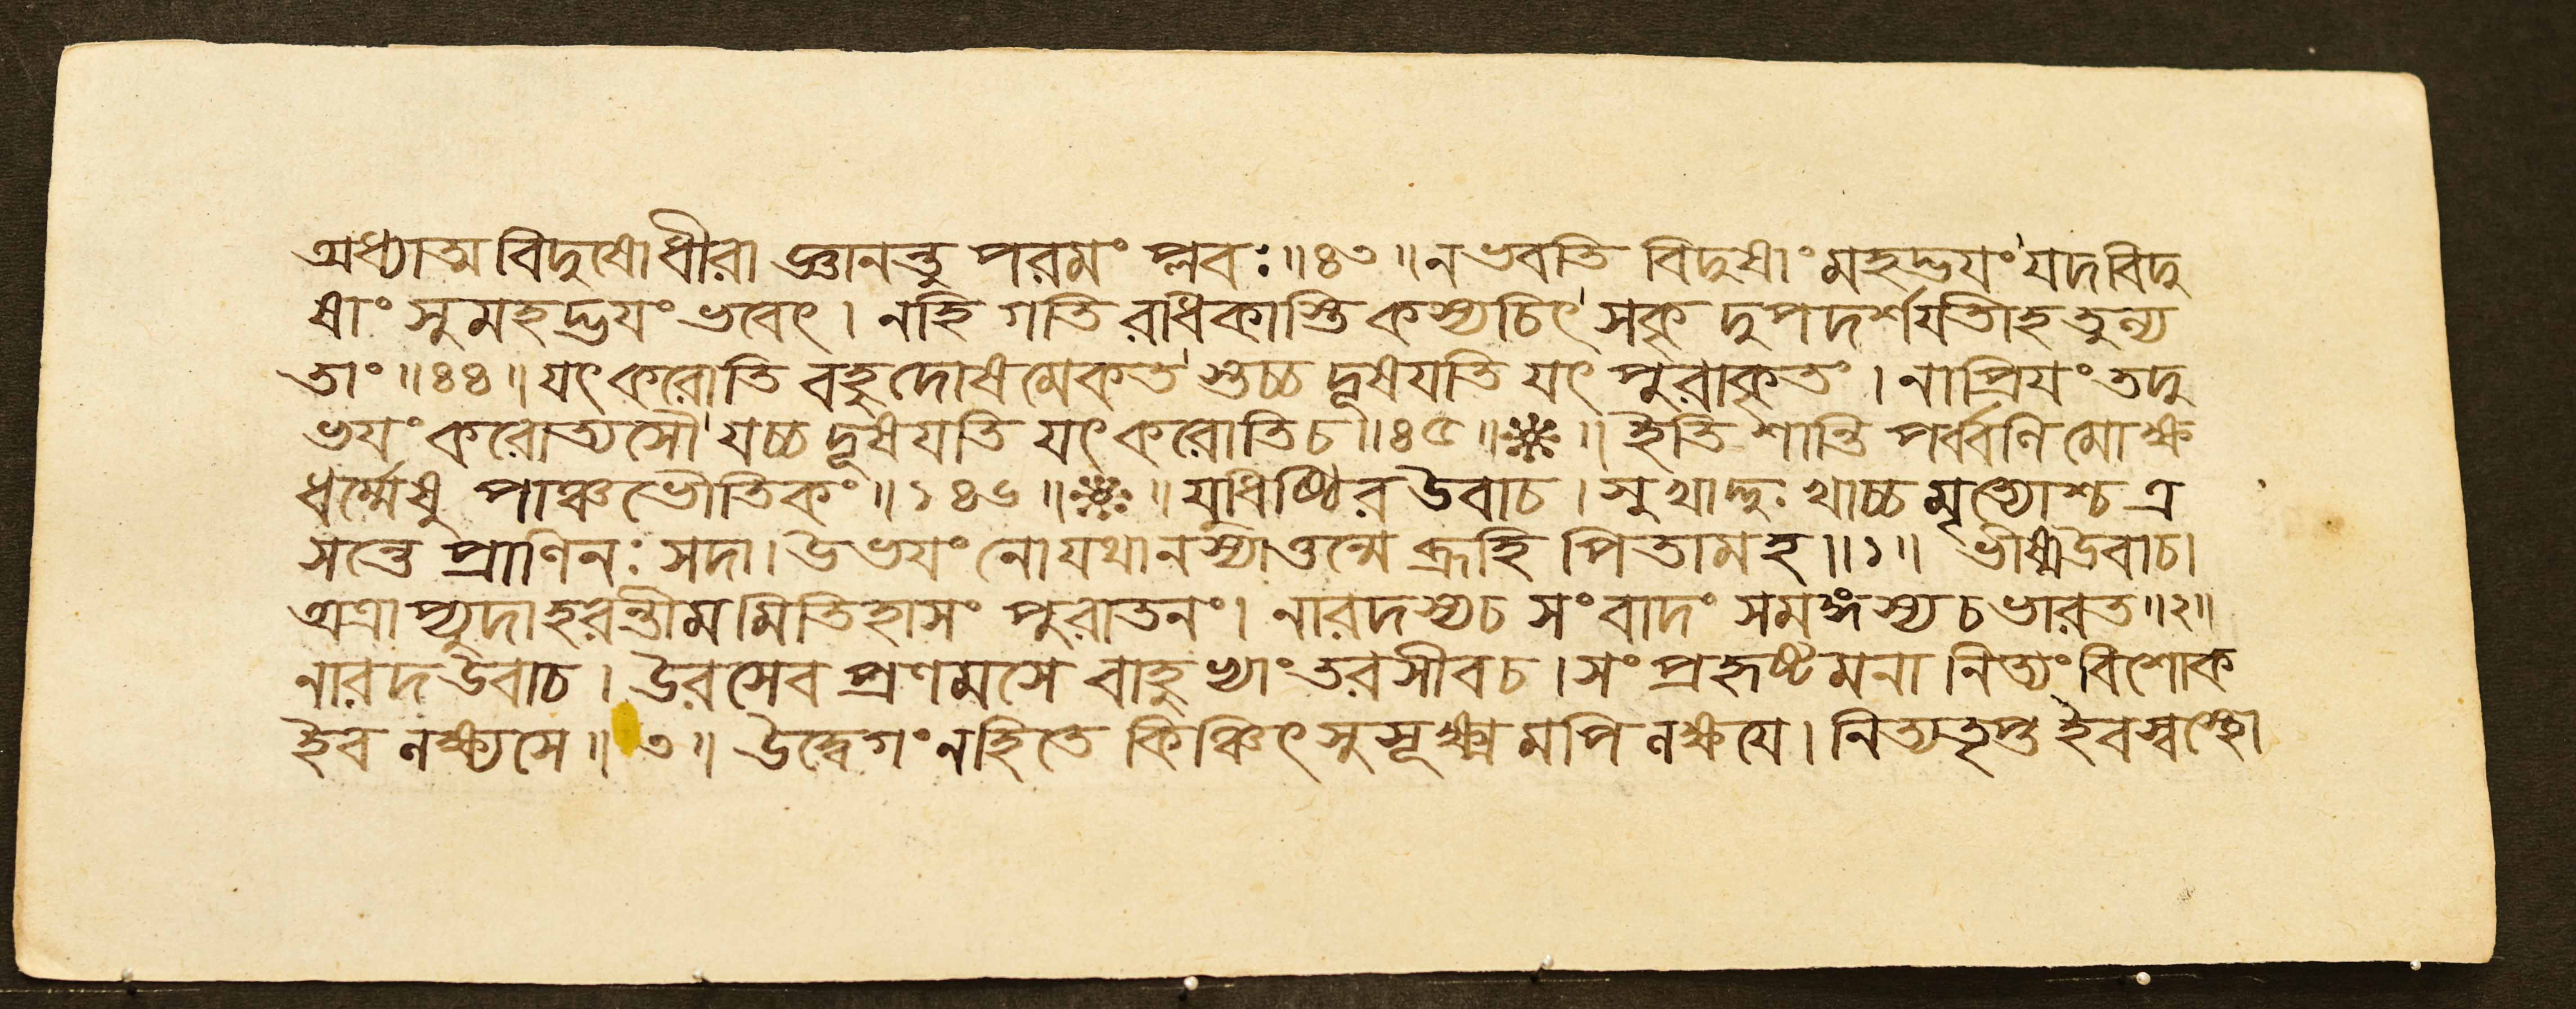 অধ্যাত্ম বিদুষোধীরা জ্ঞানন্তু পরমং প্লবঃ॥৪৩॥নভবতি বিদুষাং মহদ্ভয়ং যদবিদু
ষাং সুমহদ্ভয়ং ভবেৎ। নহি গতি রধিকাস্তি কস্যচিৎ সকৃ দুপদর্শয়তীহ তুল্য
তাং॥৪৪॥যৎ করোতি বহু দোষমেকত স্তচ্চ দূষয়তি যৎ পুরাকৃতং। নাপ্রিয়ং তদু
ভয়ং করোত্যসৌ যচ্চ দূষয়তি যৎ করোতিচ॥৪৫॥※॥ইতি শান্তি পর্ব্বণি মোক্ষ
ধর্ম্মেষু পাঞ্চভৌতিকং॥১৪৬॥※॥যুধিষ্ঠির উবাচ। সুখাদ্দুঃখাচ্চ মৃত্যোশ্চ ত্র
সন্তে প্রাণিনঃ সদা। উভয়ং নোযথানস্যাত্তন্মে ব্রূহি পিতামহ॥১॥ ভীষ্মউবাচ।
অত্রাপ্যুদাহরন্তীমমিতিহাসং পুরাতনং। নারদস্যচ সংবাদং সমঙ্গস্য চ ভারত॥২॥
নারদ উবাচ। উরসেব প্রণমসে বাহুভ্যাং তরসীবচ। সংপ্রহৃষ্টমনা নিত্যং বিশোক
ইব লক্ষ্যসে॥৩॥ উদ্বেগং নহিতে কিঞ্চিৎ সুসূক্ষ্মমপি লক্ষয়ে। নিত্যতৃপ্ত ইবস্বস্থো